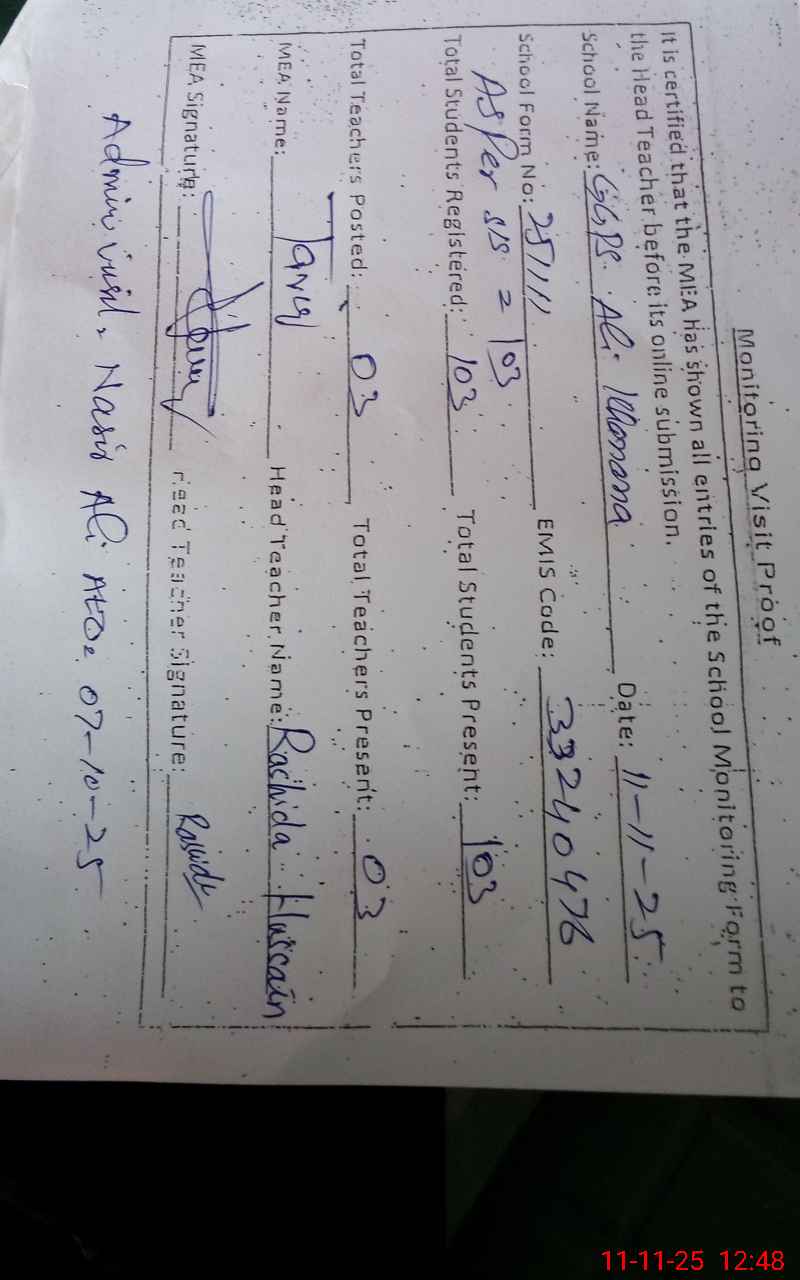 Monitoring Visit Proof
It is certified that the MEA has shown all entries of the School Monitoring Form to
the Head Teacher before its online submission.
School Name: GGPS Ali Date: 11-11-25
School Form No: 251111 EMIS Code: 33240476
As Per SIS = 103
Total Students Registered: 103 Total Students Present: 103
Total Teachers Posted: 03 Total Teachers Present: 03
MEA Name: Tariq Head Teacher Name: Rashida Hussain
MEA Signature: Head Teacher Signature: Rashida
Admin visit, Nasir Ali AEO 07-10-25
11-11-25 12:48